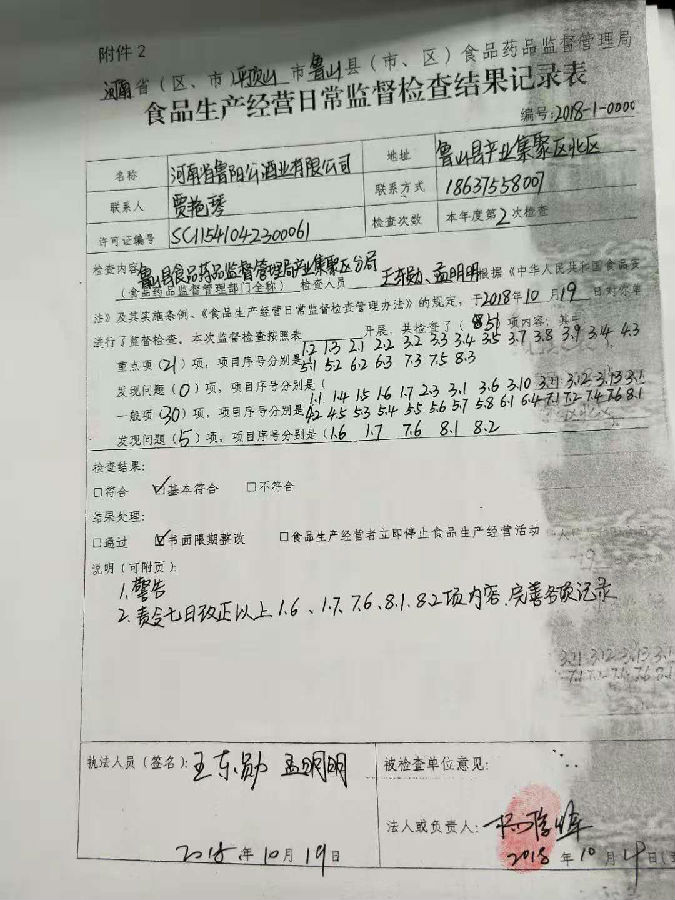 附件2
河南省（区、市）平顶山市鲁山县（市、区）食品药品监督管理局
食品生产经营日常监督检查结果记录表
编号:2018-1-0000
名称 河南省鲁阳公酒业有限公司 地址 鲁山县产业集聚区北区
联系人 贾艳琴 联系方式 18637558007
许可证编号 SC11541042300061 检查次数 本年度第2次检查
检查内容:
鲁山县食品药品监督管理局产业集聚区分局
（食品药品监督管理部门全称）检查人员 王东勋、孟明明根据《中华人民共和国食品安
法》及其实施条例、《食品生产经营日常监督检查管理办法》的规定，于2018年10月19日对你单
进行了监督检查。本次监督检查按照表 开展，共检查了（51）项内容；其中
1.2 1.3 2.1 2.2 3.2 3.3 3.4 3.5 3.7 3.8 3.9 3.4 4.3
重点项（21）项，项目序号分别是5.1 5.2 6.2 6.3 7.3 7.5 8.3
发现问题（0）项，项目序号分别是（
1.1 1.4 1.5 1.6 1.7 2.3 3.1 3.6 3.10 3.11 3.12 3.13 3.1
一般项（30）项，项目序号分别是4.2 4.5 5.3 5.4 5.5 5.6 5.7 5.8 6.1 6.4 7.1 7.2 7.4 7.6 8.1
发现问题（5）项，项目序号分别是（1.6 1.7 7.6 8.1 8.2
检查结果:
□符合 ☑基本符合 □不符合
结果处理:
□通过 ☑书面限期整改 □食品生产经营者立即停止食品生产经营活动
说明（可附页）:
1.警告
2.责令七日改正以上1.6、1.7、7.6、8.1、8.2项内容，完善各项记录
3.11 3.12 3.13 3.1
7.1 7.2 7.4 7.6 8.1
执法人员（签名）: 王东勋 孟明明
被检查单位意见:
法人或负责人:
2018年10月19日
2018年10月19日